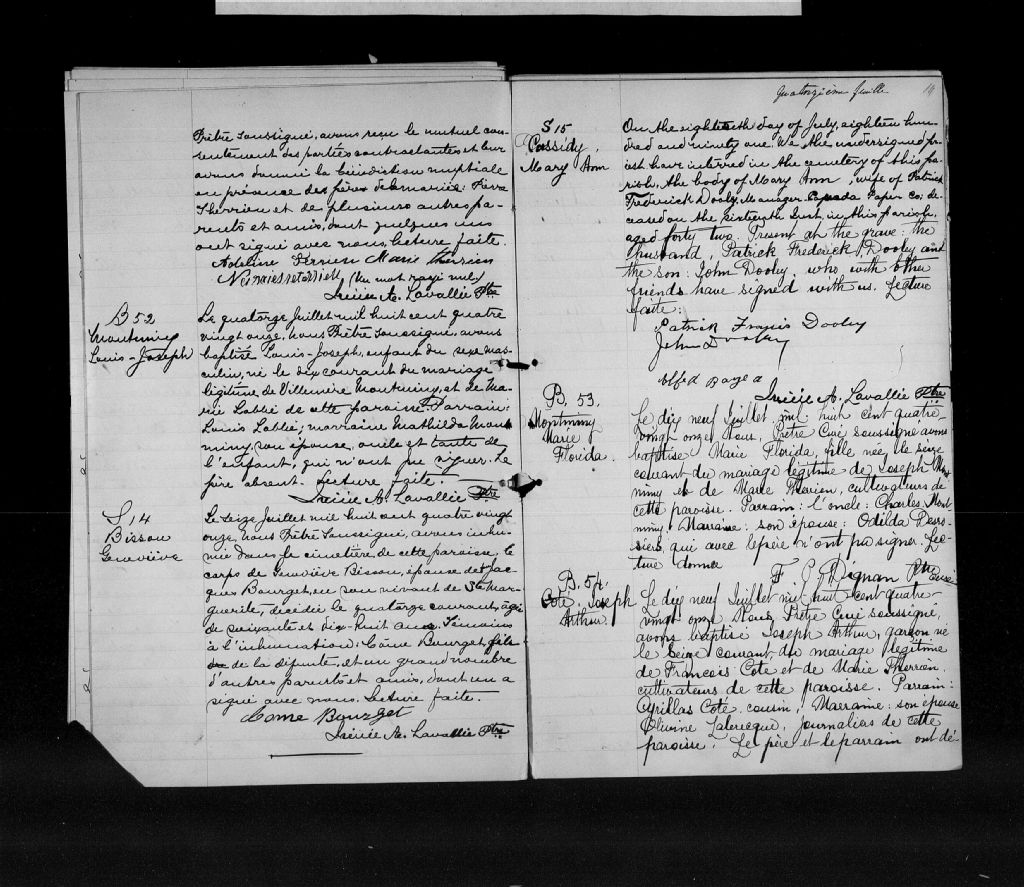 Prêtre soussigné, avons reçu le mutuel con-
sentement des parties contractantes et leur
avons donné la bénédiction nuptiale
en présence des pères de la mariée: Pierre
Therrien et de plusieurs autres pa-
rents et amis, dont quelques uns
ont signé avec nous. Lecture faite.
Adeline Terrien Marie Therrien
(Un mot rayé nul)
Irénée A. Lavallée Ptre
B 52
Montminy
Louis-Joseph
Le quatorze Juillet mil huit cent quatre
vingt onze, nous Prêtre soussigné, avons
baptisé Louis-Joseph, enfant du sexe mas-
culin, né le dix courant du mariage
légitime de Villemire Montminy, et de Ma-
rie Labbé de cette paroisse. Parrain:
Louis Labbé; marraine Mathilda Mont-
miny, son épouse, oncle et tante de
l'enfant, qui n'ont pu signer. Le
père absent. Lecture faite.
Irénée A. Lavallée Ptre
S 14
Bisson
Geneviève
Le seize Juillet mil huit cent quatre vingt
onze, nous Prêtre soussigné, avons inhu-
mé dans le cimetière de cette paroisse, le
corps de Geneviève Bisson, épouse de Jac-
ques Bourget, en son vivant de Ste Mar-
guerite, décédée le quatorze courant, âgée
de soixante et dix-huit ans. Témoins
à l'inhumation: Côme Bourget fils
de la défunte, et un grand nombre
d'autres parents et amis, dont un a
signé avec nous. Lecture faite.
Come Bourget
Irénée A. Lavallée Ptre
Quatorzième feuille 14
S 15
Cassidy
Mary Ann
On the eighteenth day of July, eighteen hun-
dred and ninety one. We the undersigned pr-
iest have interred in the cemetery of this pa-
rish, the body of Mary Ann, wife of Patrick
Frederick Dooly, Manager Canada Paper Co; de-
ceased on the sixteenth Inst, in this parish,
aged forty two. Present at the grave: the
husband, Patrick Frederick Dooley and
the son: John Dooley, who with other
friends have signed with us. Lecture
faite:
Patrick Francis Dooley
John Dooley
Irénée A. Lavallée Ptre
B. 53.
Montminy
Marie
Florida.
Le dix neuf Juillet mil huit cent quatre-
vingt onze Nous, Prêtre Curé soussigné avons
baptisé Marie Florida, fille née le seize
courant du mariage légitime de Joseph Mont-
miny et de Marie Therien, cultivateurs de
cette paroisse. Parrain: l'oncle: Charles Mont-
miny Marraine: son épouse: Odilda
qui avec le père n'ont pa signer. Lec-
ture donnée
F. E. Dignan Ptre Curé
B. 54.
Coté Joseph
Arthur.
Le dix neuf Juillet mil huit cent quatre-
vingt onze Nous Prêtre Curé soussigné,
avons baptisé Joseph Arthur, garçon né
le seize courant du mariage légitime
de François Coté et de Marie Therrien.
cultivateurs de cette paroisse. Parrain:
Cyrillas Coté cousin, Marraine: son épouse
Olivine journaliers de cette
paroisse. Le père et le parrain ont dé-